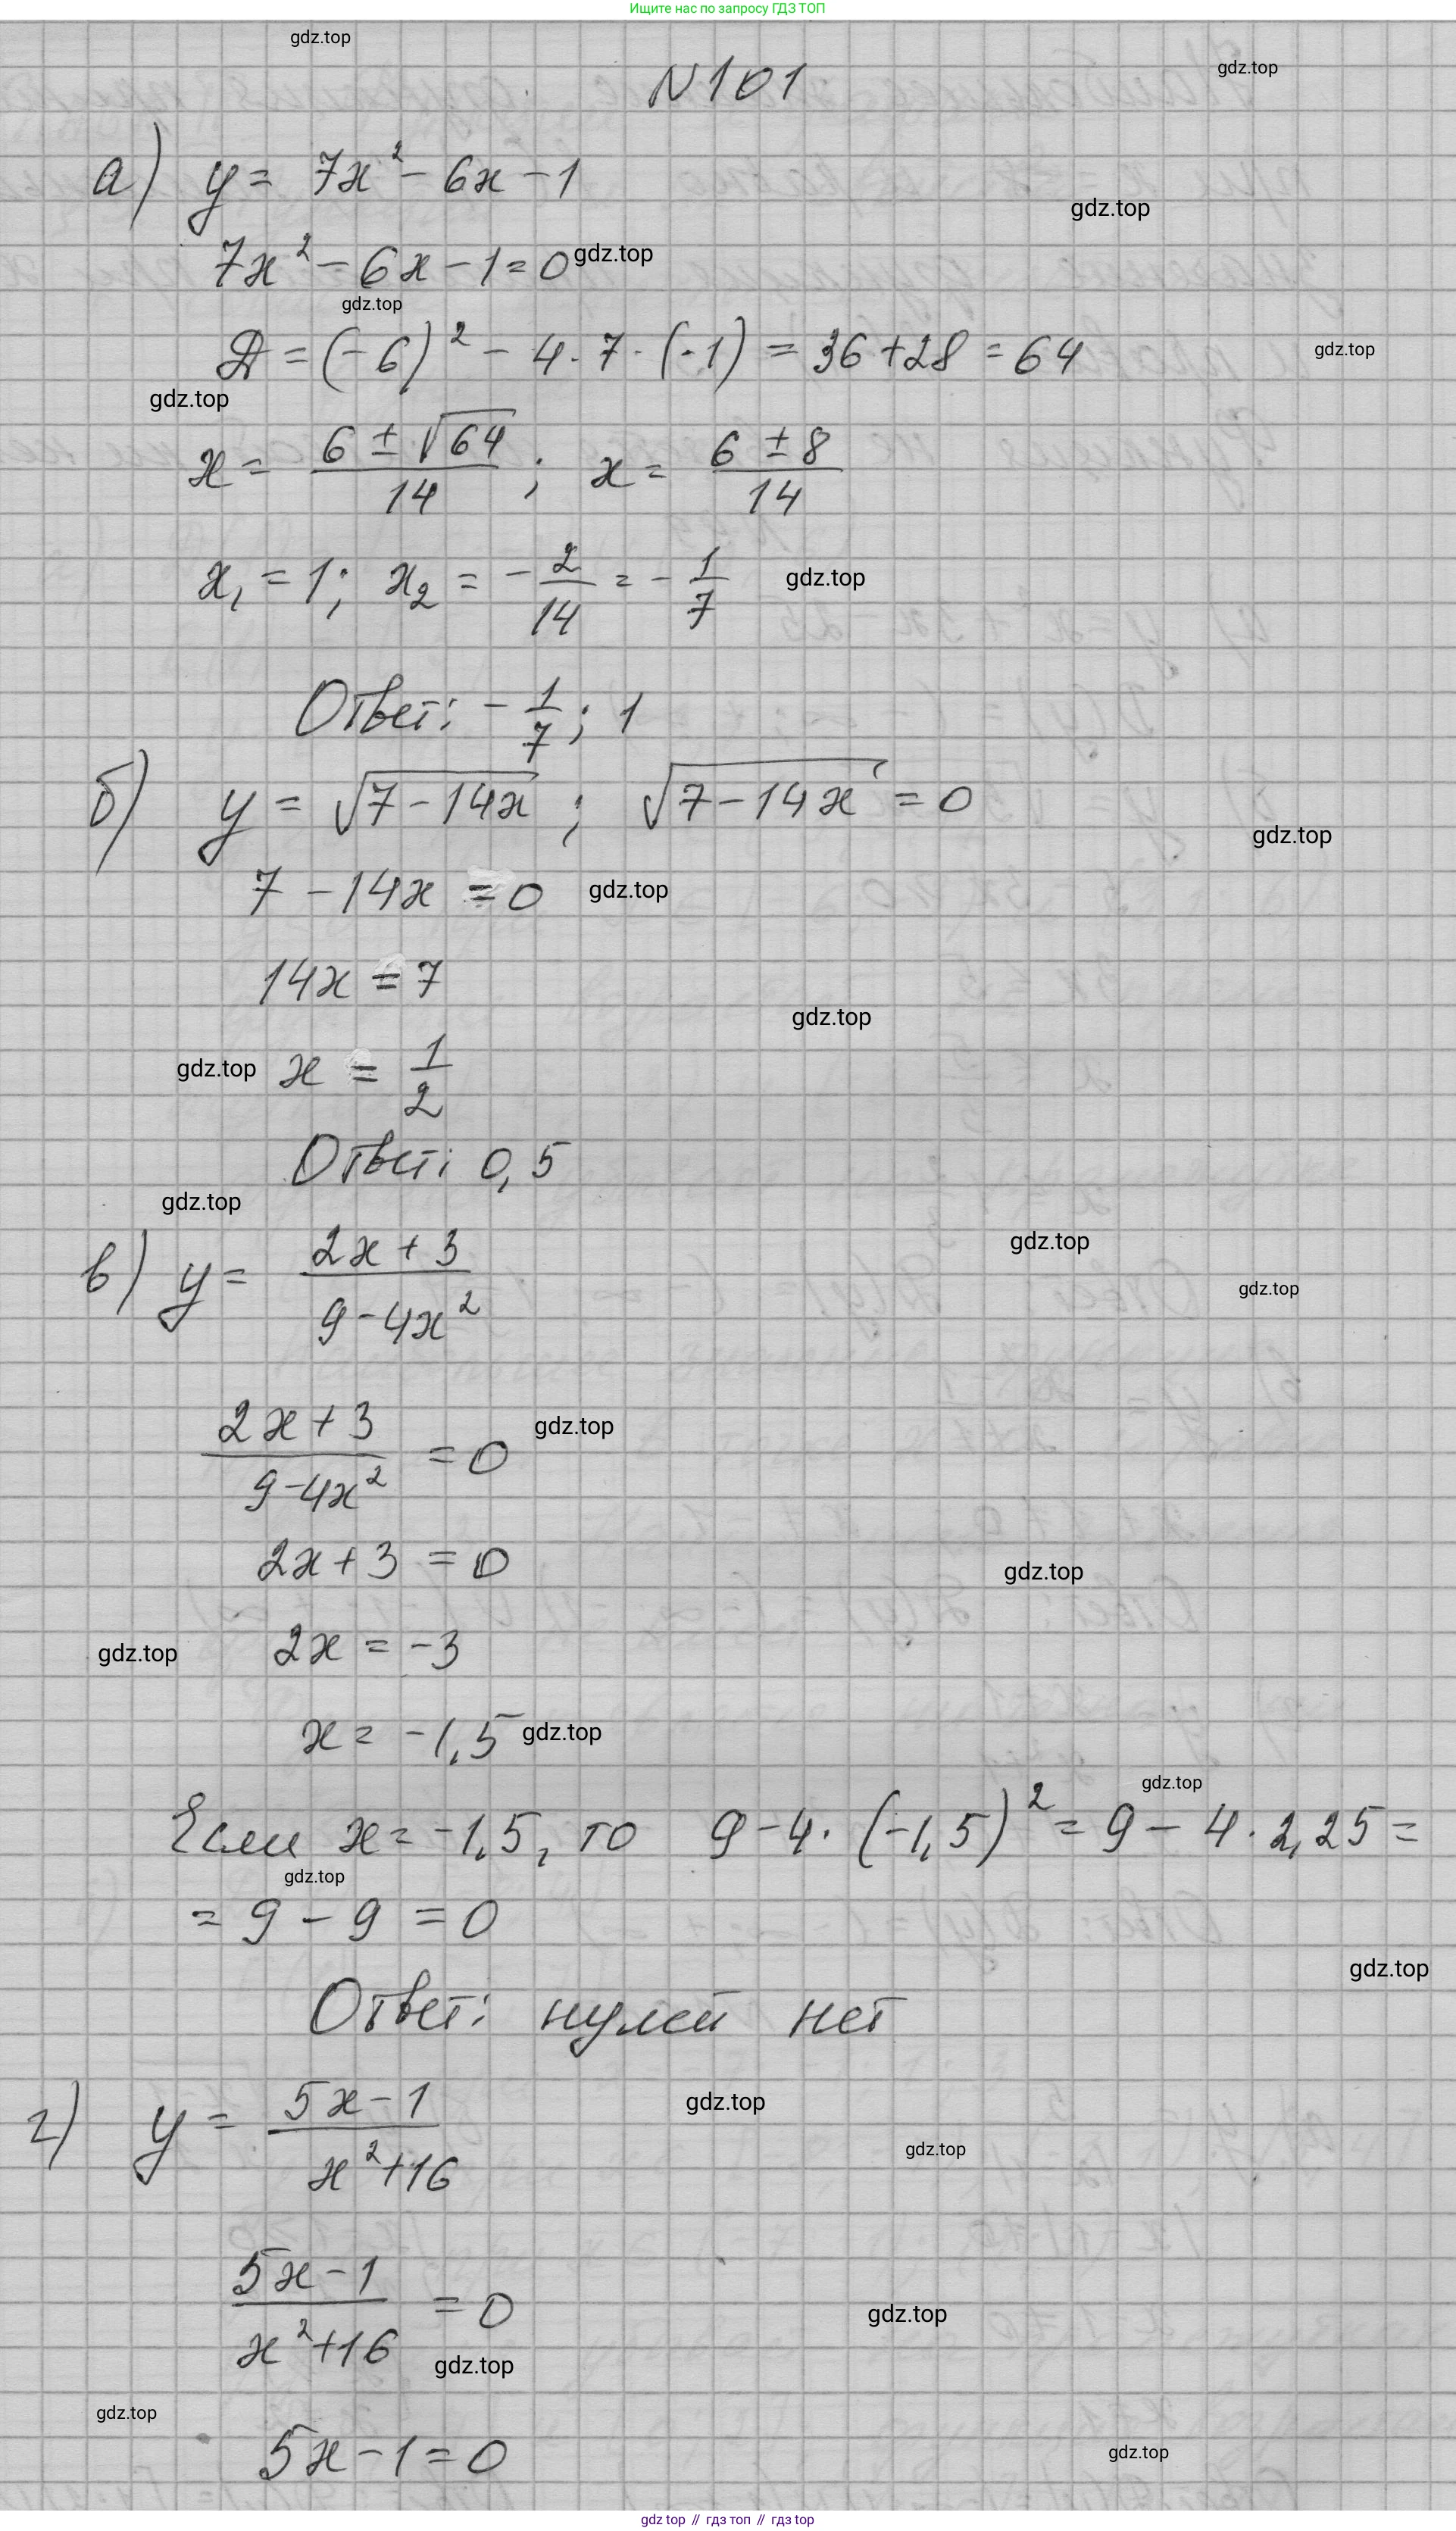 Ищите нас по запросу ГДЗ ТОП
gdz.top
N101
gdz.top
а) y = 7x² - 6x - 1
gdz.top
7x² - 6x - 1 = 0 gdz.top
gdz.top
Д = (-6)² - 4 · 7 · (-1) = 36 + 28 = 64
gdz.top
gdz.top
x = (6 ± √64)/14 ; x = (6 ± 8)/14
x₁ = 1; x₂ = -2/14 = -1/7 gdz.top
Ответ: -1/7; 1
б) y = √(7 - 14x) ; √(7 - 14x) = 0
gdz.top
7 - 14x = 0 gdz.top
14x = 7
gdz.top
gdz.top x = 1/2
Ответ: 0,5
gdz.top
gdz.top
в) y = (2x + 3)/(9 - 4x²)
gdz.top
(2x + 3)/(9 - 4x²) = 0 gdz.top
2x + 3 = 0
gdz.top
gdz.top 2x = -3
x = -1,5 gdz.top
gdz.top
Если x = -1,5, то 9 - 4 · (-1,5)² = 9 - 4 · 2,25 =
gdz.top
= 9 - 9 = 0
gdz.top
Ответ: нулей нет
г) y = (5x - 1)/(x² + 16)
gdz.top
gdz.top
(5x - 1)/(x² + 16) = 0
gdz.top
gdz.top
gdz.top
5x - 1 = 0
gdz.top
gdz top // гдз топ // gdz top